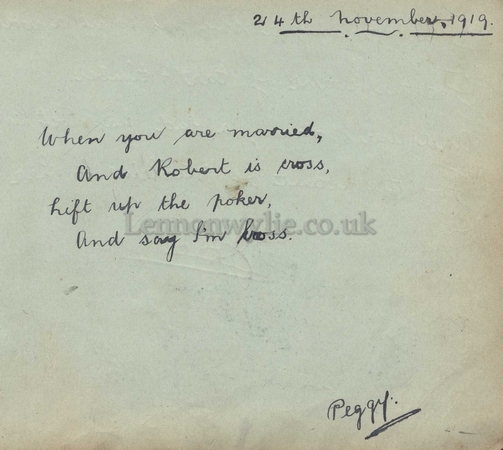 24th november, 1919.
When you are married,
And Robert is cross,
Lift up the poker,
Lennonwylie.co.uk
And say I'm boss.
Peggy.